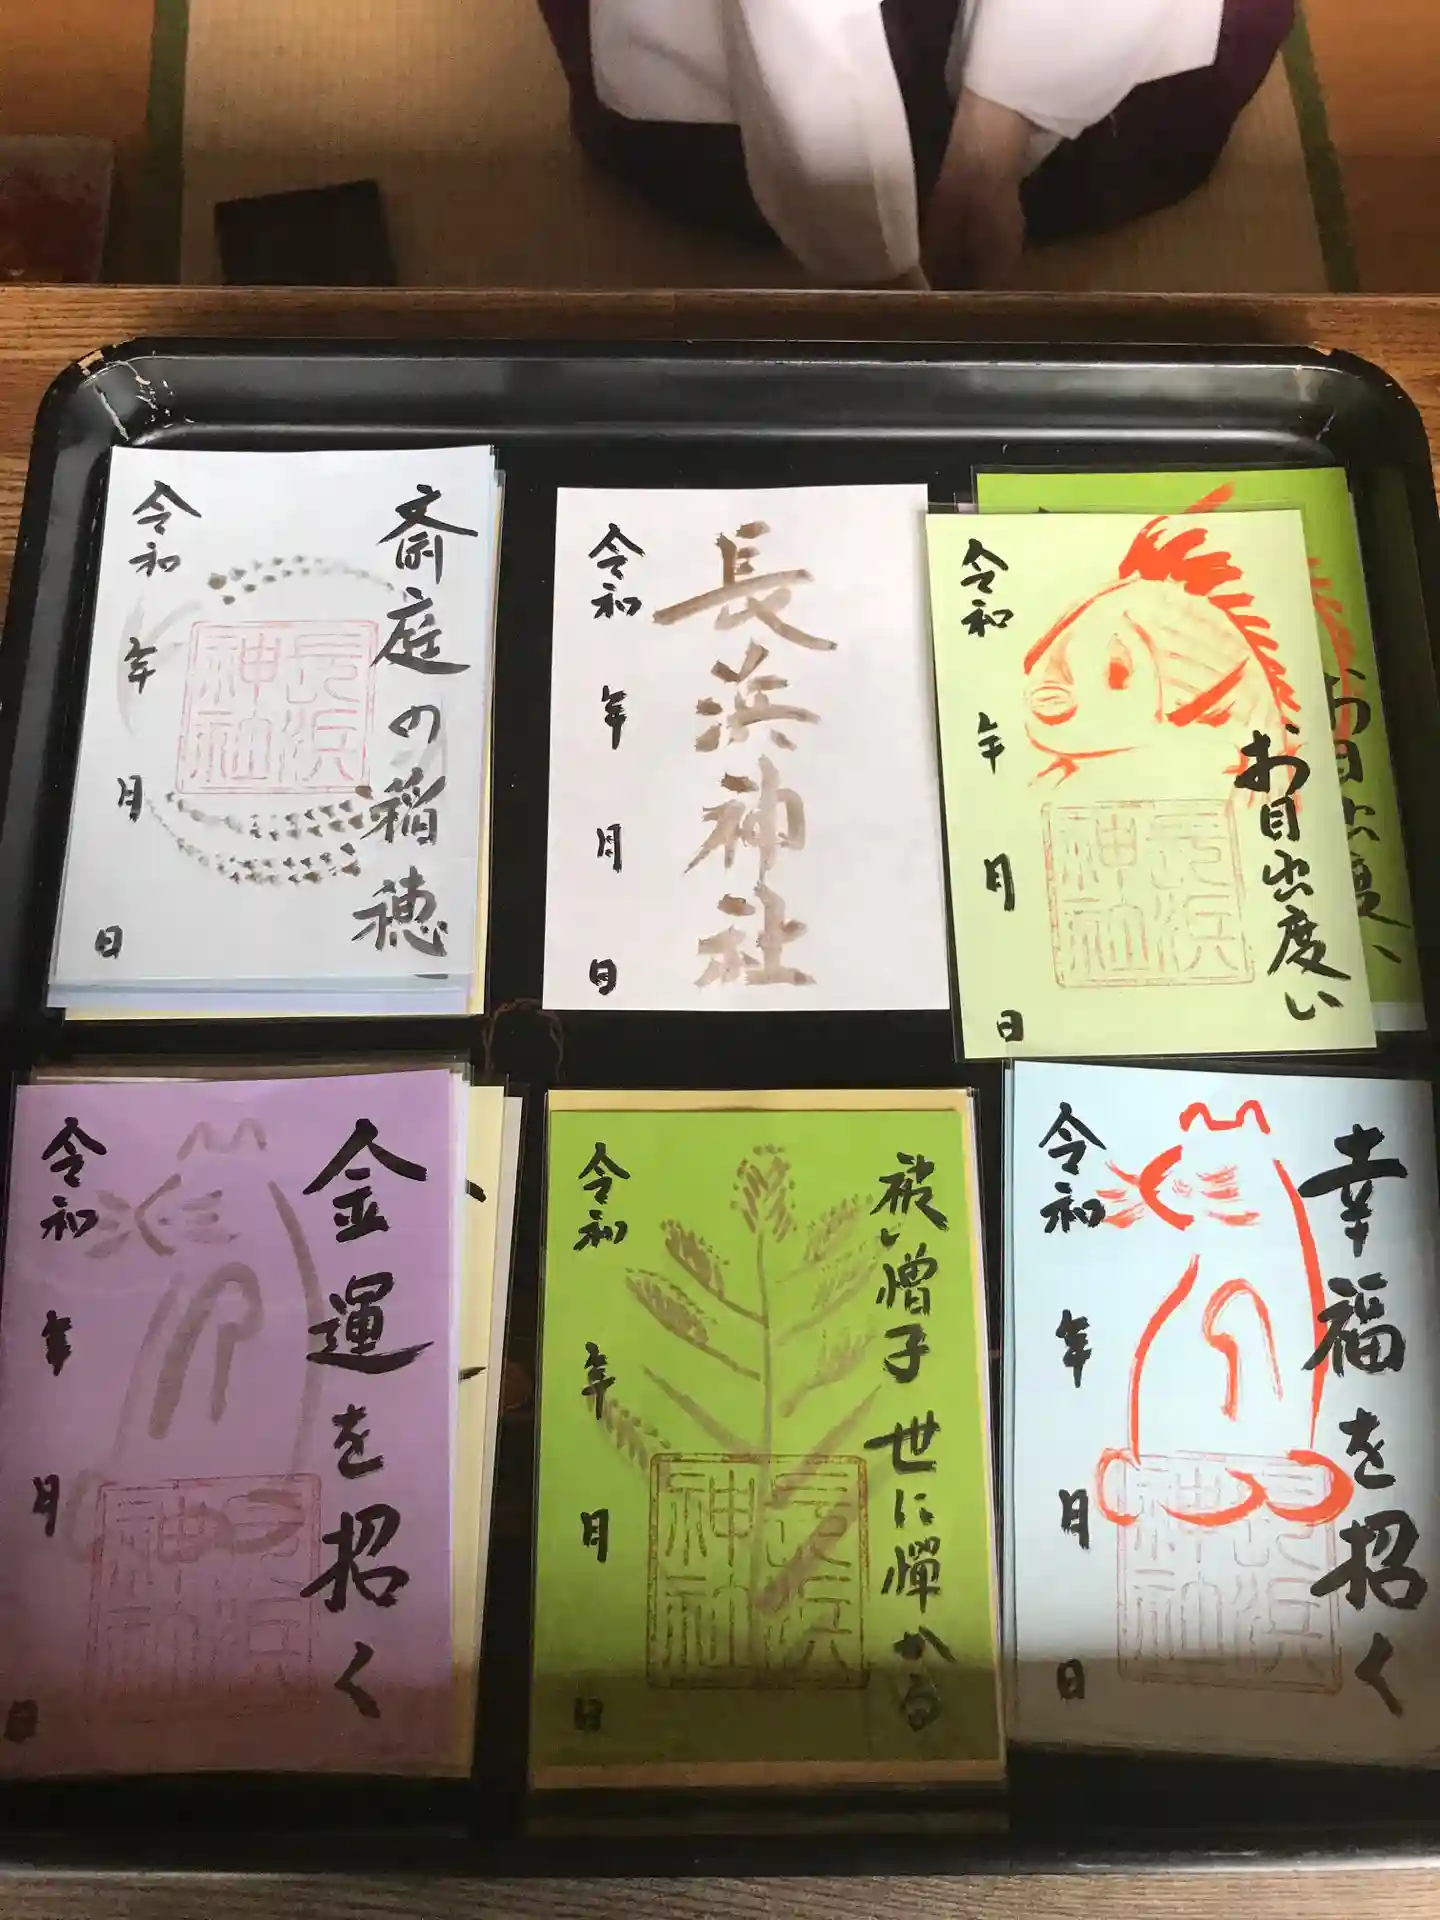 斎庭の稲穂
令和
年
月
日
長浜神社
長浜神社
令和
年
月
日
お目出度い
令和
年
月
日
長浜神社
お目出度い
金運を招く
令和
年
月
日
長浜神社
祓い憎子世に憚かる
令和
年
月
日
長浜神社
幸福を招く
令和
年
月
日
長浜神社